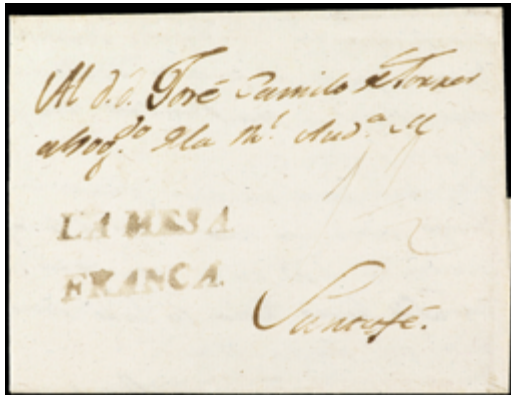 Al d.d. José Camilo de Torres
abog.do de la R.l Aud.a
LA MESA
FRANCA
Santafé.